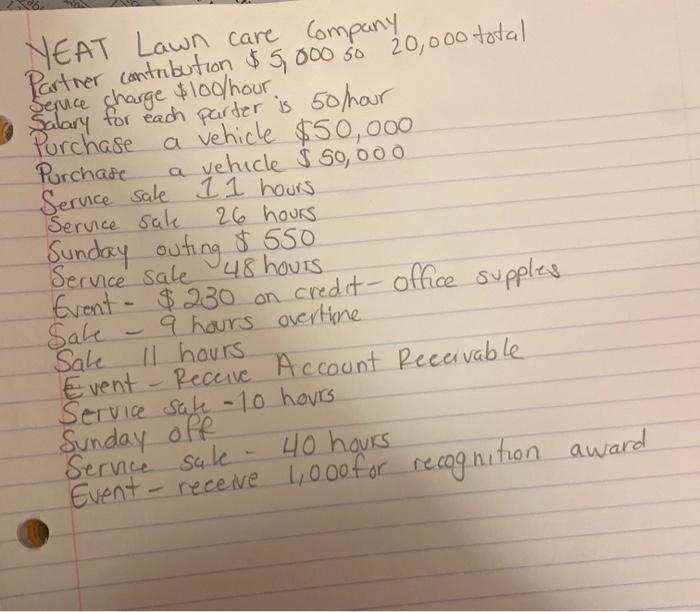 YEAT Lawn care Company
Partner contribution $5,000 so 20,000 total
Service charge $100/hour.
Salary for each parter is 50/hour
Purchase a vehicle $50,000
Purchase a vehicle $50,000
Service sale 11 hours
Service sale 26 hours
Sunday outing $550
Service sale 48 hours
Event - $230 on credit - office supples
Sale - 9 hours overtime
Sale 11 hours
Event - Receive Account Receivable
Service sale - 10 hours
Sunday off
Service sale - 40 hours
Event - receive 1,000 for recognition award